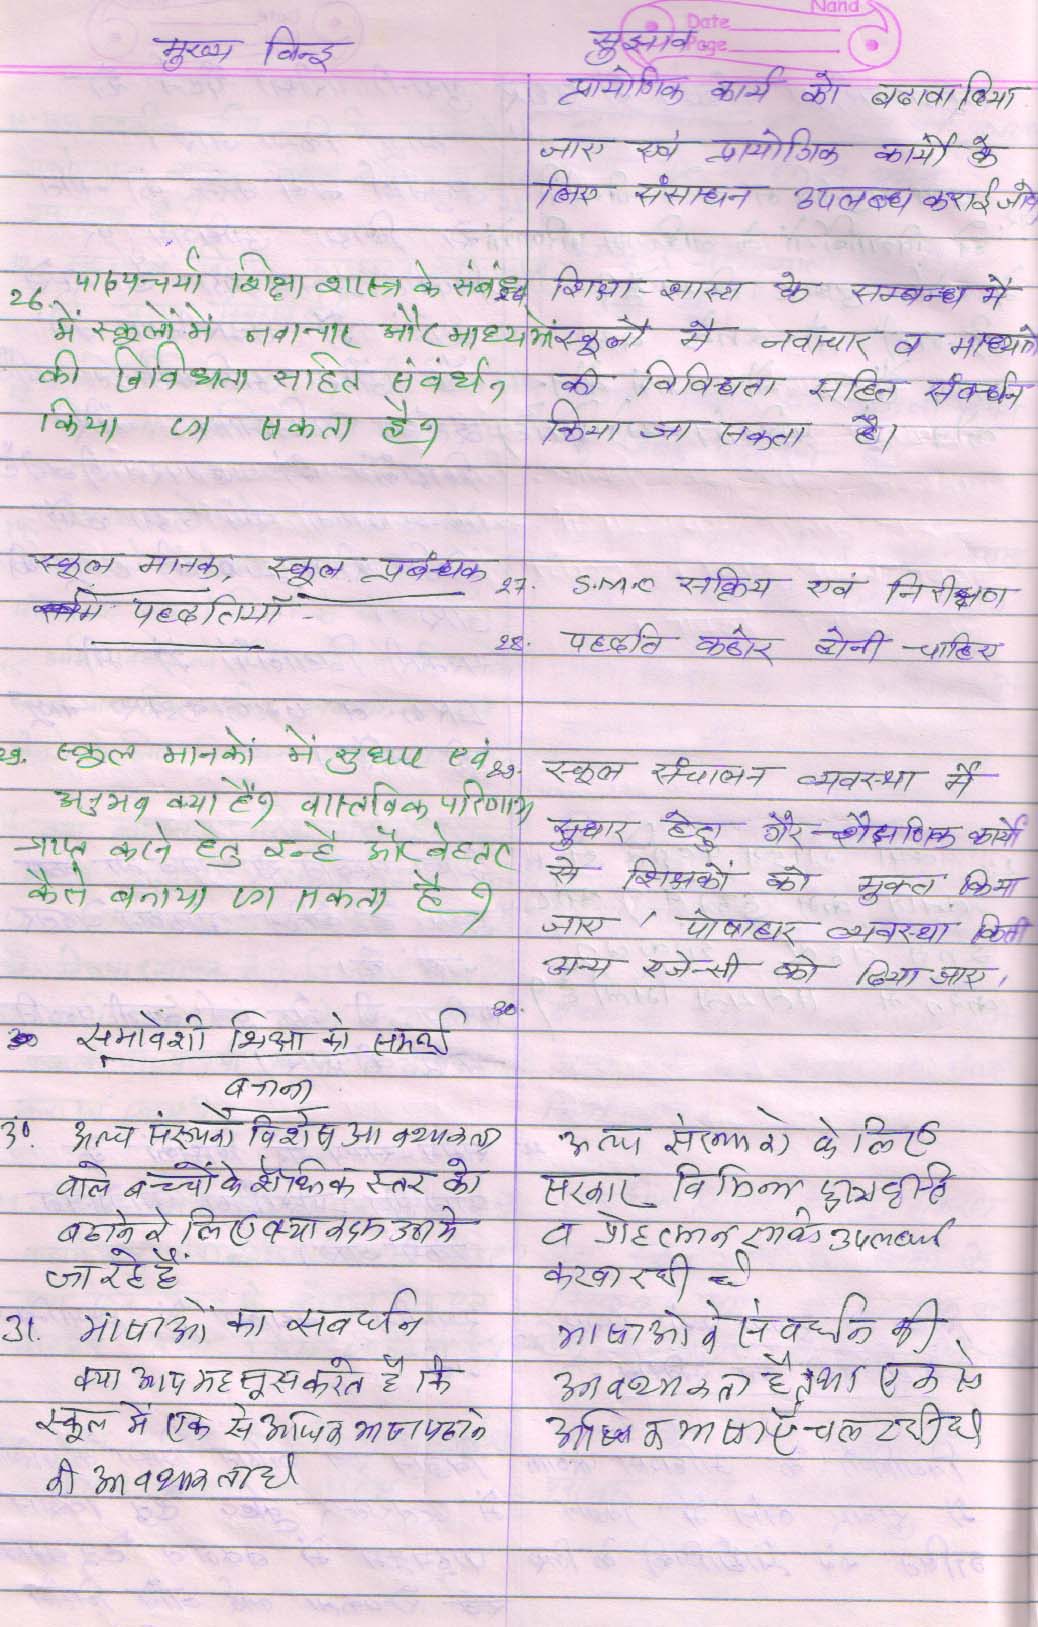 Nand
Date
Page
मुख्य बिन्दु
सुझाव
प्रायोगिक कार्य को बढावा दिया
जाए एवं प्रायोगिक कार्यो के
लिए संसाधन उपलब्ध कराई जावे
26. पाठ्यचर्या शिक्षा शास्त्र के संबंध
में स्कूलों में नवाचार और माध्यमों
की विविधता सहित संवर्धन
किया जा सकता है?
शिक्षा-शास्त्र के सम्बन्ध में
स्कूलों में नवाचार व माध्यमों
की विविधता सहित संवर्धन
किया जा सकता है।
स्कूल मानक, स्कूल प्रबंधक
पद्दतियाँ -
27. S.M.C सक्रिय एवं निरीक्षण
28. पद्दति कठोर होनी चाहिए
29. स्कूल मानकों में सुधार एवं
अनुभव क्या हैं? वास्तविक परिणाम
प्राप्त करने हेतु इन्हें और बेहतर
कैसे बनाया जा सकता है?
29. स्कूल संचालन व्यवस्था में
सुधार हेतु गैर-शैक्षणिक कार्यो
से शिक्षकों को मुक्त किया
जाए, पोषाहार व्यवस्था किसी
अन्य एजेन्सी को दिया जाए।
30.
30 समावेशी शिक्षा को समर्थ
बनाना
30. अल्प संख्यको विशेष आवश्यकता
वाले बच्चों के शैक्षिक स्तर को
बढाने के लिए क्या कदम उठाये
जा रहे हैं
अल्प संख्यको के लिए
सरकार विभिन्न छात्रवृत्ति
व प्रोहत्सान उपलब्ध
करवा रही है
31. भाषाओं का संवर्धन
क्या आप महसूस करते है कि
स्कूल में एक से अधिक भाषा पढाने
की आवश्यकता है
भाषाओ के संवर्धन की
आवश्यकता है तथा एक से
अधिक भाषाएँ चल रही है